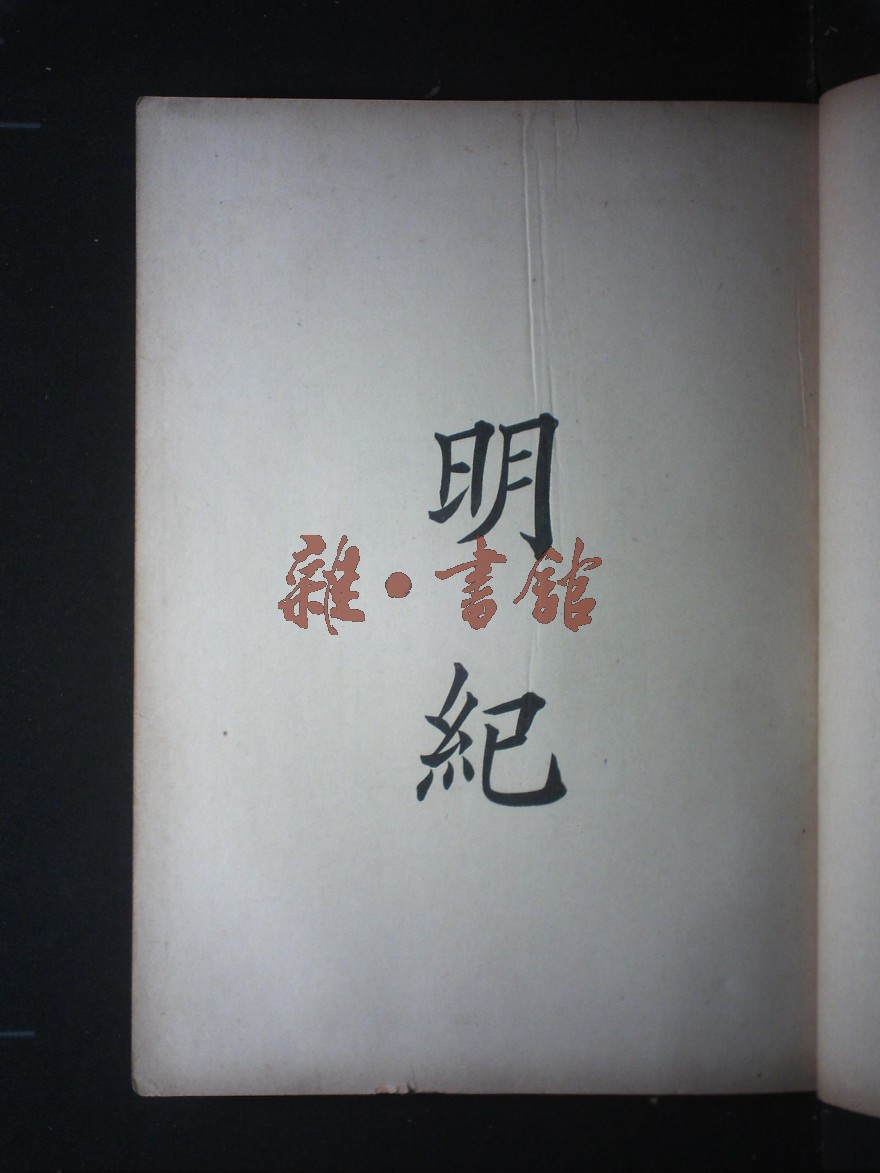 明紀
雜·書館